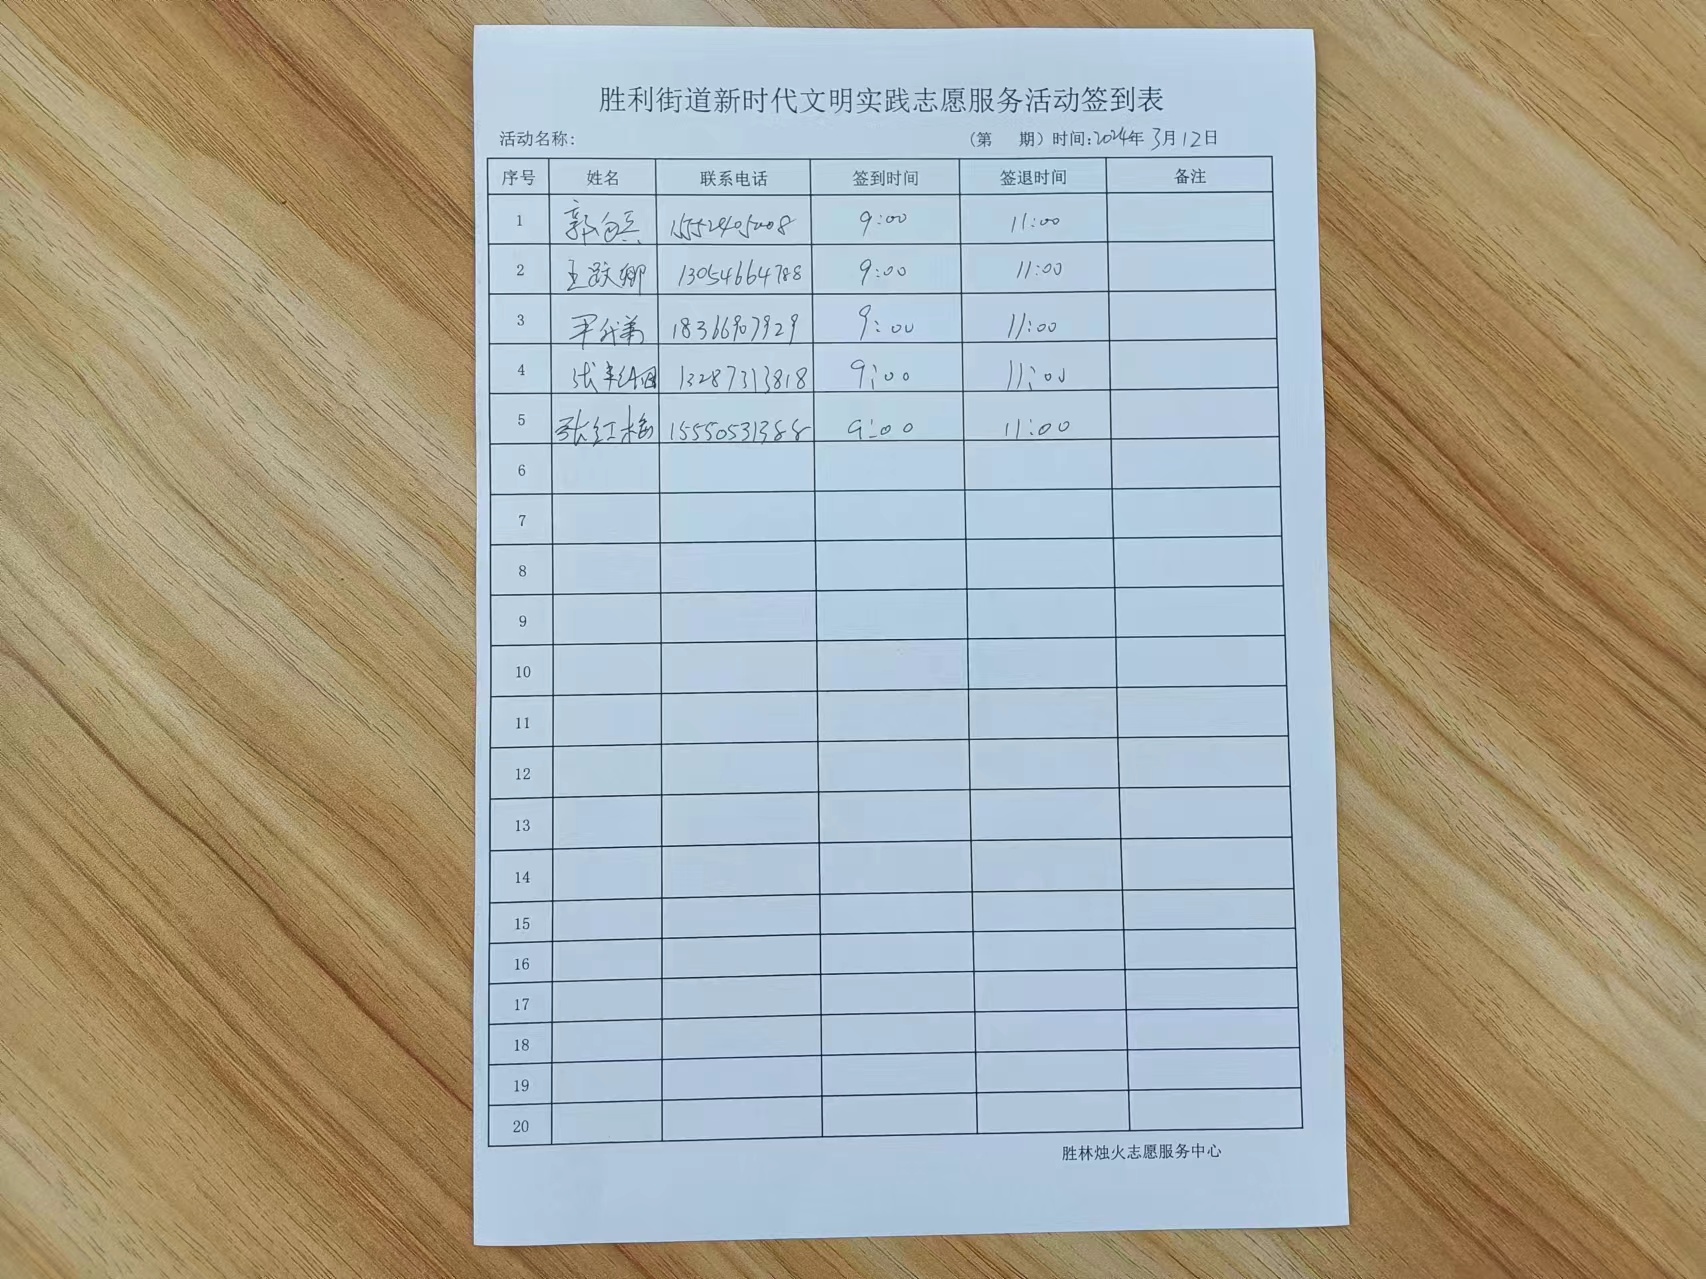 胜利街道新时代文明实践志愿服务活动签到表
活动名称: （第 期）时间:2024年 3月12日
序号 姓名 联系电话 签到时间 签退时间 备注
1 郭 15552405008 9:00 11:00
2 王 娜 13054664788 9:00 11:00
3 18366907929 9:00 11:00
4 13287313818 9:00 11:00
5 张红梅 15550531388 9:00 11:00
6
7
8
9
10
11
12
13
14
15
16
17
18
19
20
胜林烛火志愿服务中心